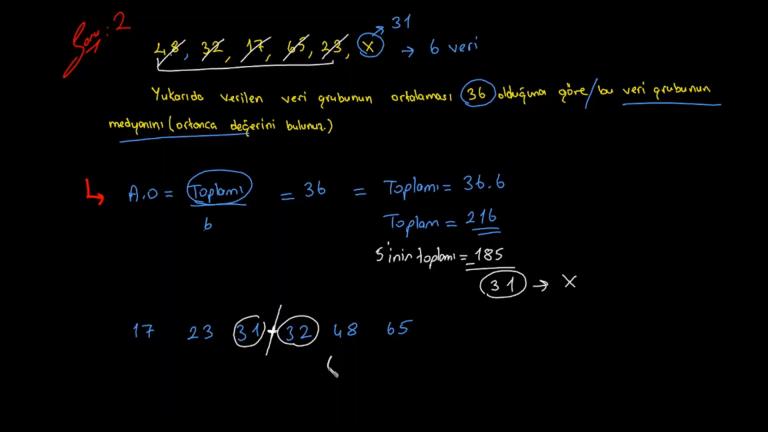 Soru: 2
31
48, 32, 17, 65, 23, x → 6 veri
Yukarıda verilen veri grubunun ortalaması 36 olduğuna göre/bu veri grubunun
medyanını (ortanca değerini bulunuz.)
A.O = Toplamı / 6 = 36 = Toplamı = 36.6
Toplam = 216
5'inin toplamı = -185
31 → x
17 23 31 + 32 48 65